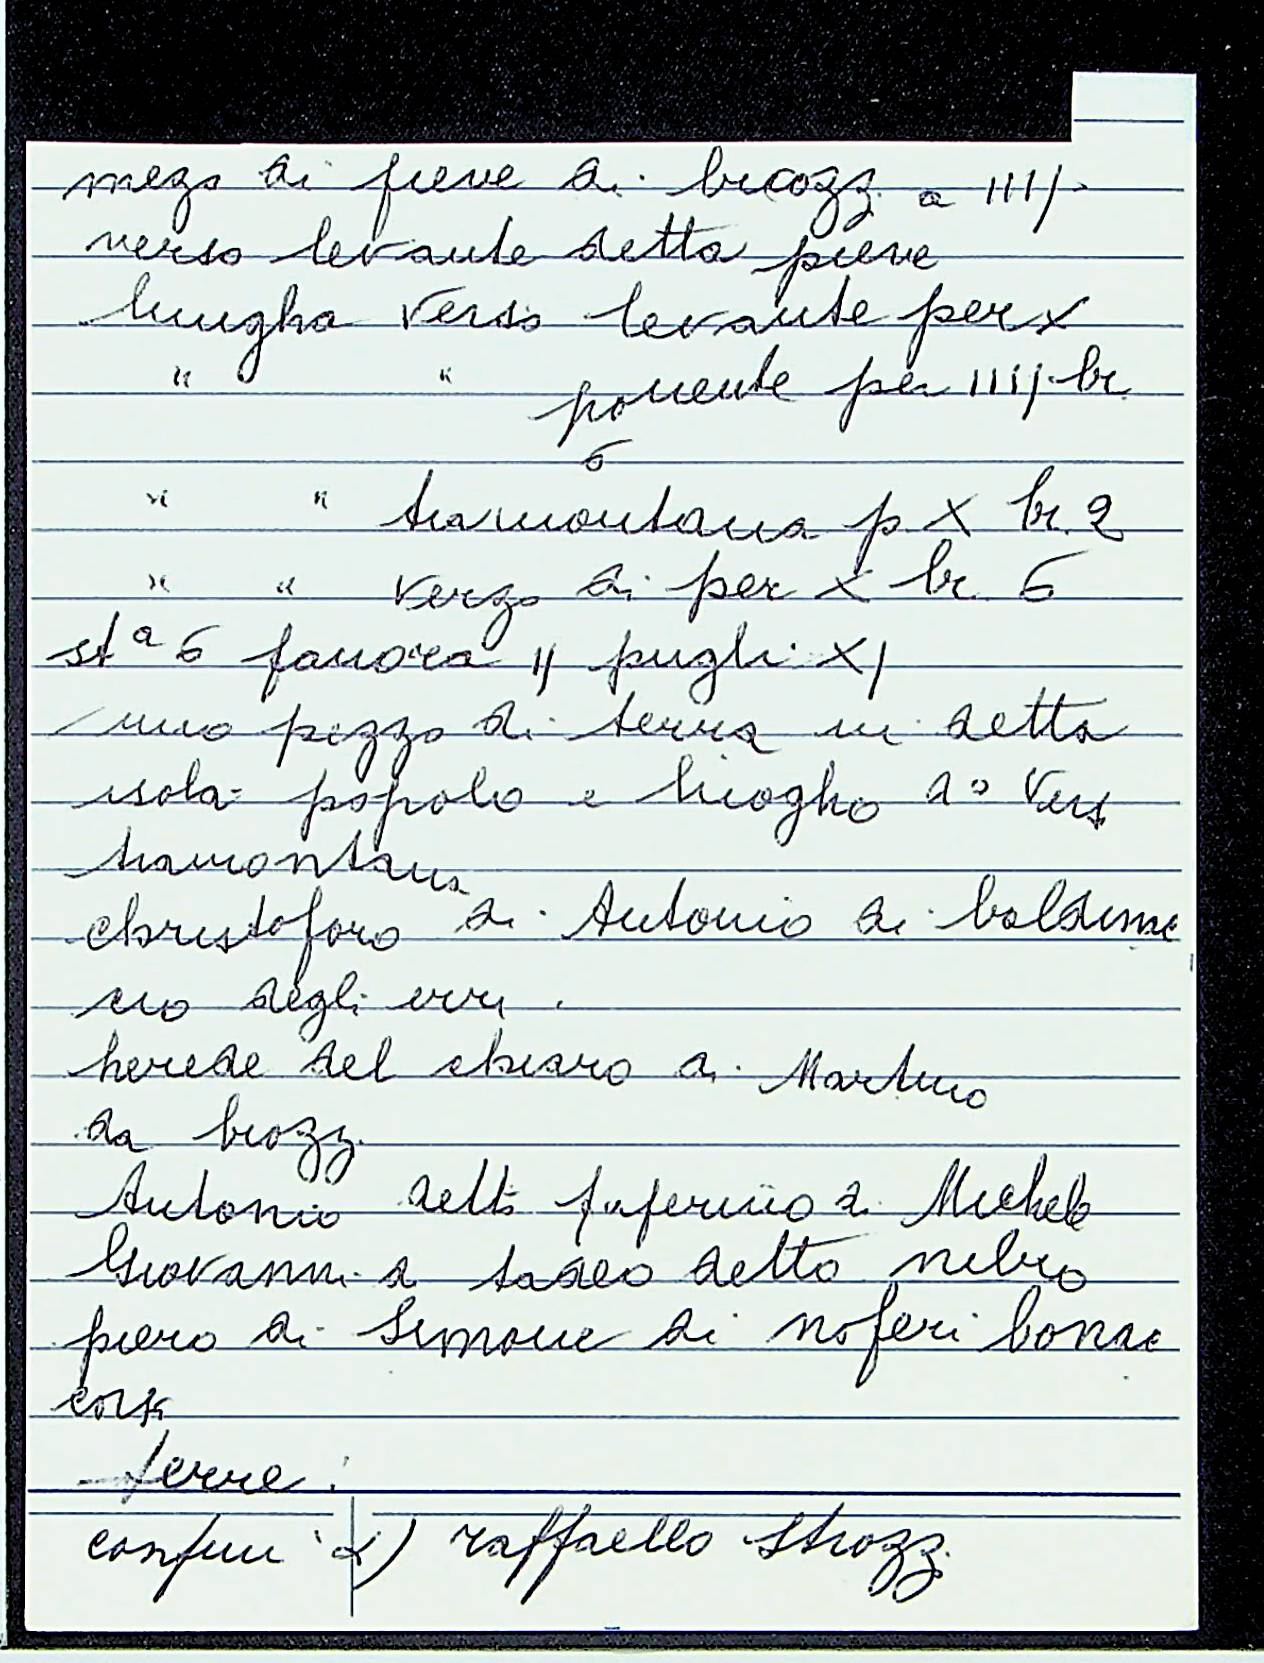 mezo di pieve di brozzi a IIIJ.
verso levante detta pieve
lungha verso levante per X
" " ponente per IIIJ. br.
6
" " tramontana p X br. 2
" " verzo di per X br. 6
st.ª 6 panora IJ pugli XJ
uno pezzo di terra in detta
isola popolo e luogho d° vers
tramontana
christoforo di Antonio di baldinac
cio degli
herede del chiaro di Martino
da brozzi
Antonio detto di Michele
Giovanni di tadeo detto nibio
piero di Simone di noferi bonac
corsi
terre:
confini α) raffaello Strozzi